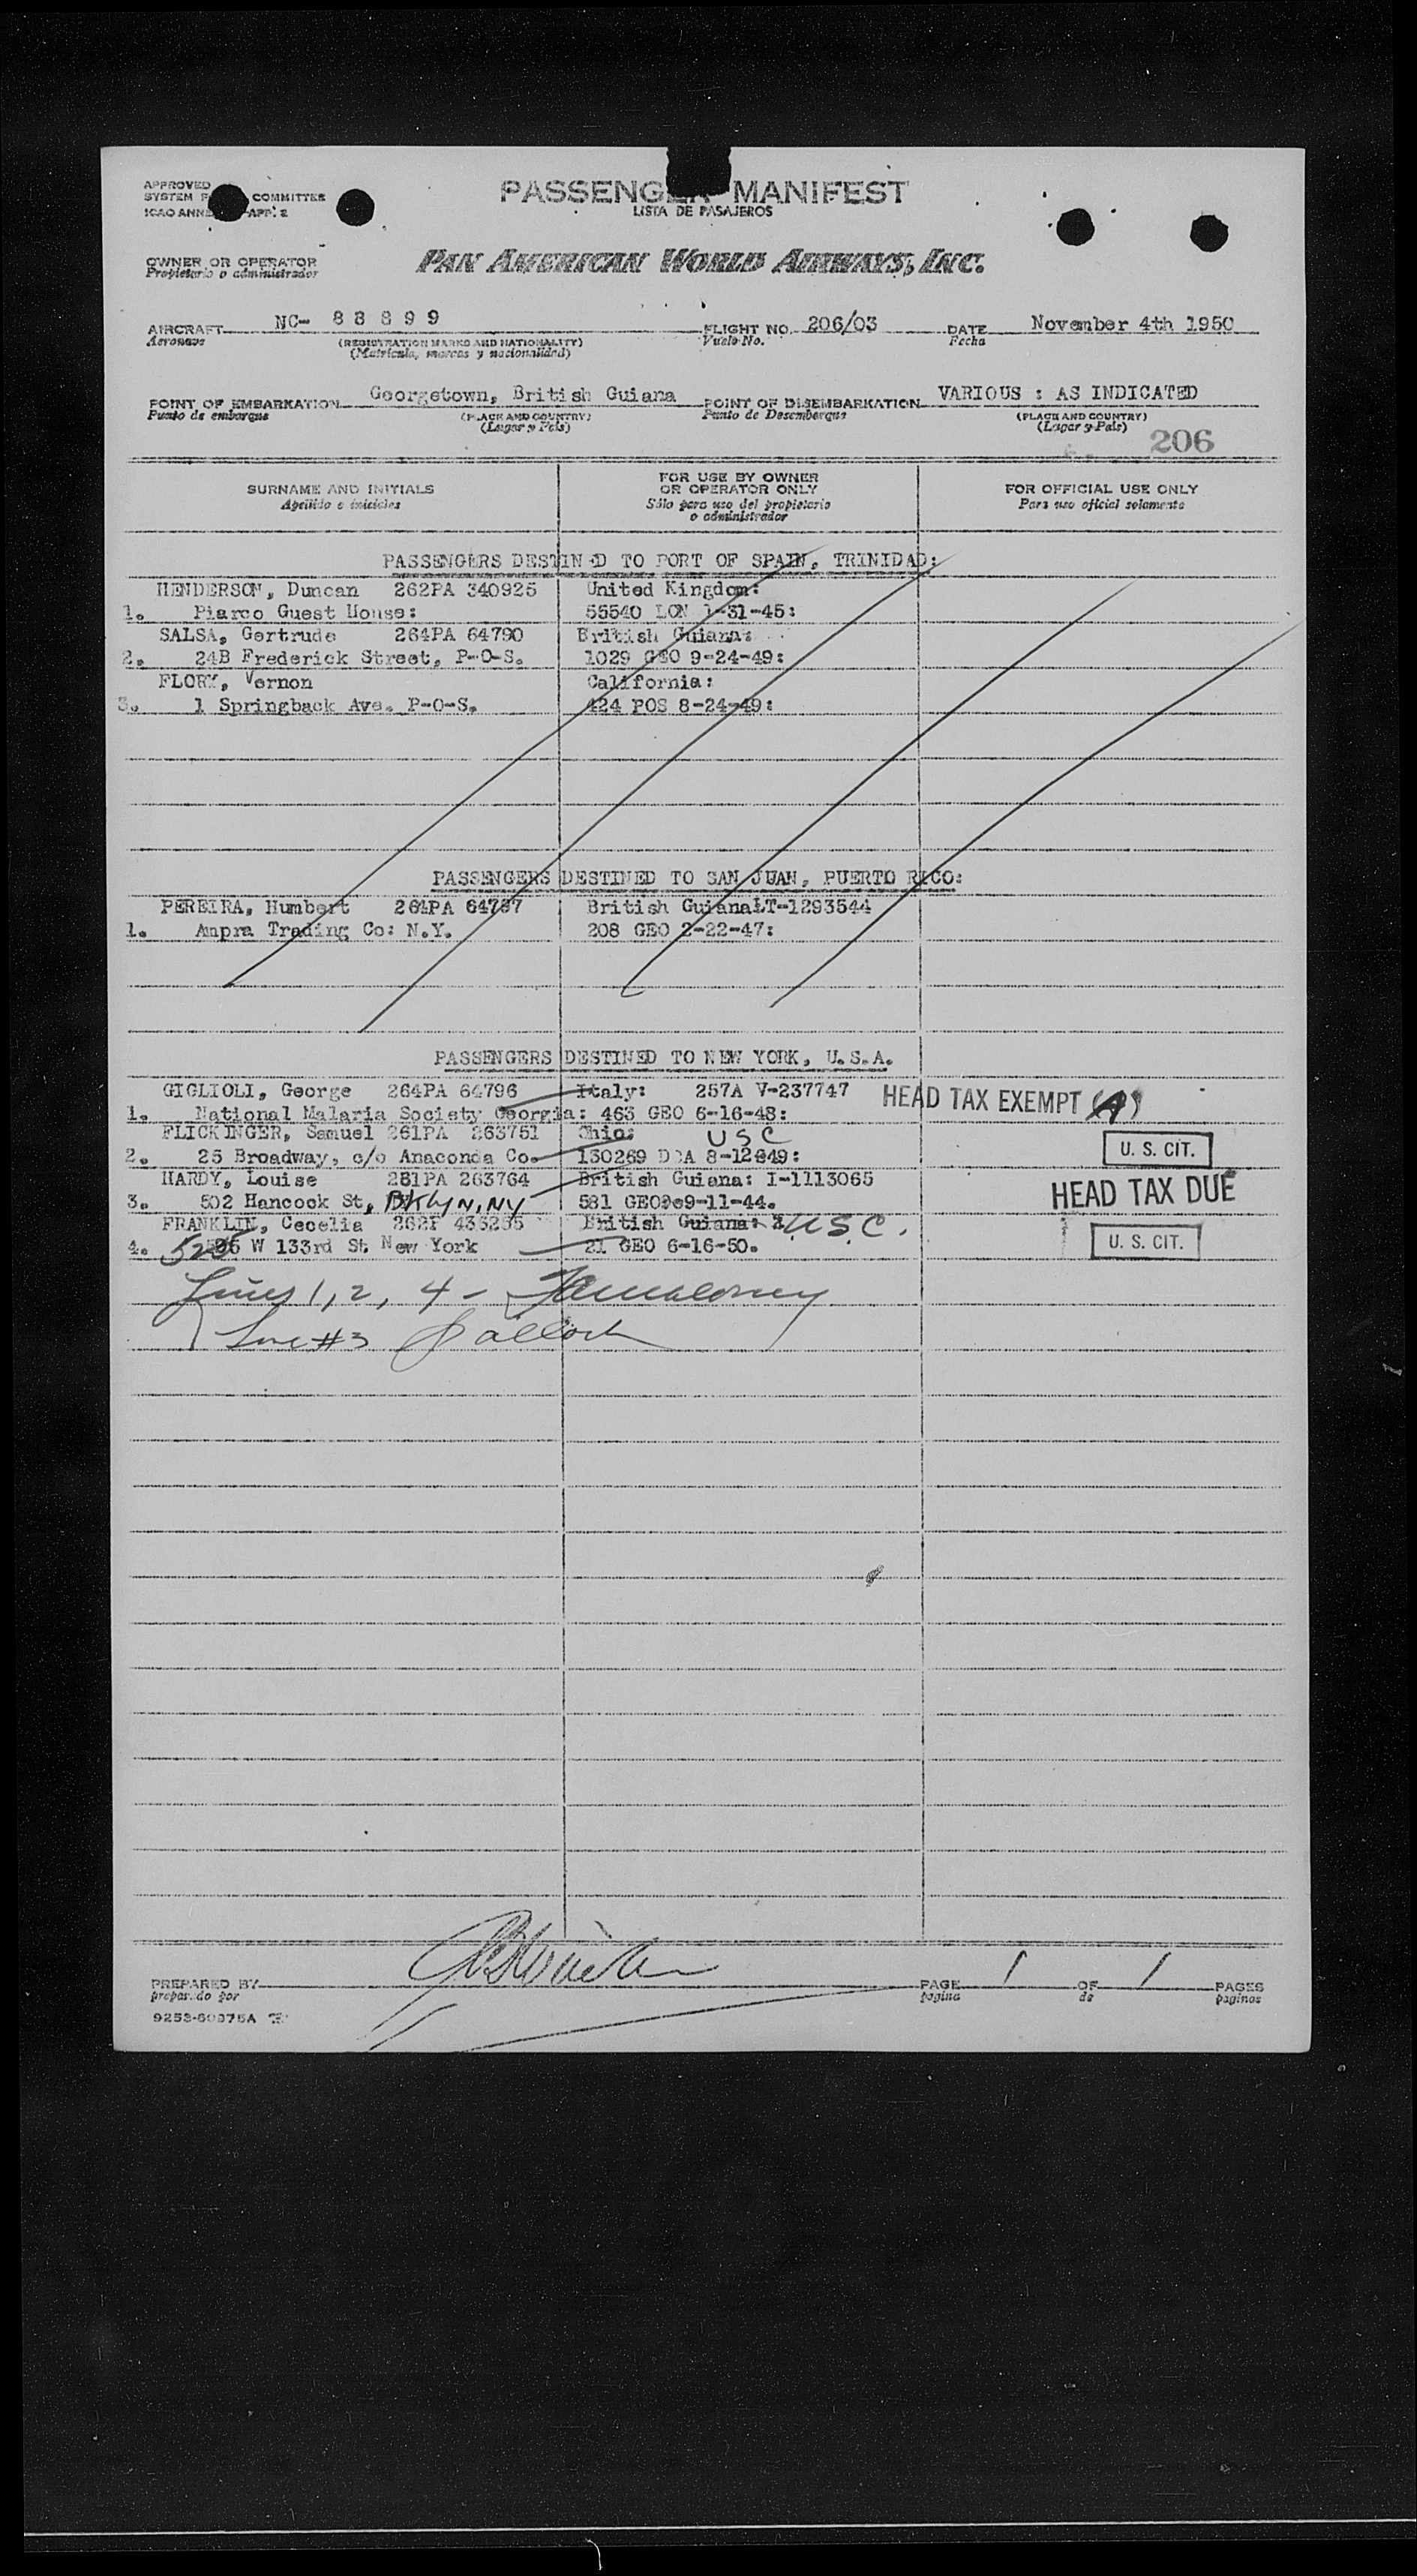 APPROVED
SYSTEM COMMITTEE
ICAO ANNE APP. 2
PASSENGER MANIFEST
LISTA DE PASAJEROS
OWNER OR OPERATOR
Propietario o administrador
PAN AMERICAN WORLD AIRWAYS, INC.
AIRCRAFT NC- 8 8 8 9 9 FLIGHT NO. 206/03 DATE November 4th 1950
Aeronave (REGISTRATION MARKS AND NATIONALITY) Vuelo No. Fecha
(Matricula, marcas y nacionalidad)
POINT OF EMBARKATION Georgetown, British Guiana POINT OF DISEMBARKATION VARIOUS : AS INDICATED
Punto de embarque (PLACE AND COUNTRY) Punto de Desembarque (PLACE AND COUNTRY)
(Lugar y Pais) (Lugar y Pais) 206
SURNAME AND INITIALS FOR USE BY OWNER OR OPERATOR ONLY FOR OFFICIAL USE ONLY
Apellido e iniciales Sólo para uso del propietario o administrador Para uso oficial solamente
PASSENGERS DESTINED TO PORT OF SPAIN, TRINIDAD:
HENDERSON, Duncan 262PA 340925 United Kingdom:
1. Piarco Guest House: 55540 LON 1-31-45:
SALSA, Gertrude 264PA 64790 British Guiana:
2. 24B Frederick Street, P-O-S. 1029 GEO 9-24-49:
FLORY, Vernon California:
3. 1 Springback Ave. P-O-S. 424 POS 8-24-49:
PASSENGERS DESTINED TO SAN JUAN, PUERTO RICO:
PEREIRA, Humbert 264PA 64787 British GuianaLT-1293544
1. Ampra Trading Co: N.Y. 208 GEO 2-22-47:
PASSENGERS DESTINED TO NEW YORK, U.S.A.
GIGLIOLI, George 264PA 64796 Italy: 257A V-237747 HEAD TAX EXEMPT (A)
1. National Malaria Society Georgia: 463 GEO 6-16-48:
FLICKINGER, Samuel 261PA 263751 Ohio: USC
2. 25 Broadway, c/o Anaconda Co. 130269 8-12-49: U. S. CIT.
HARDY, Louise 281PA 263764 British Guiana: I-1113065
3. 502 Hancock St, BKLYN, NY 581 GEO 9-11-44. HEAD TAX DUE
FRANKLIN, Cecelia British Guiana: U.S.C.
4. 525 W 133rd St. New York 21 GEO 6-16-50. U. S. CIT.
Lines 1, 2, 4 -
Line #3
PREPARED BY PAGE 1 OF 1 PAGES
preparado por pagina de paginas